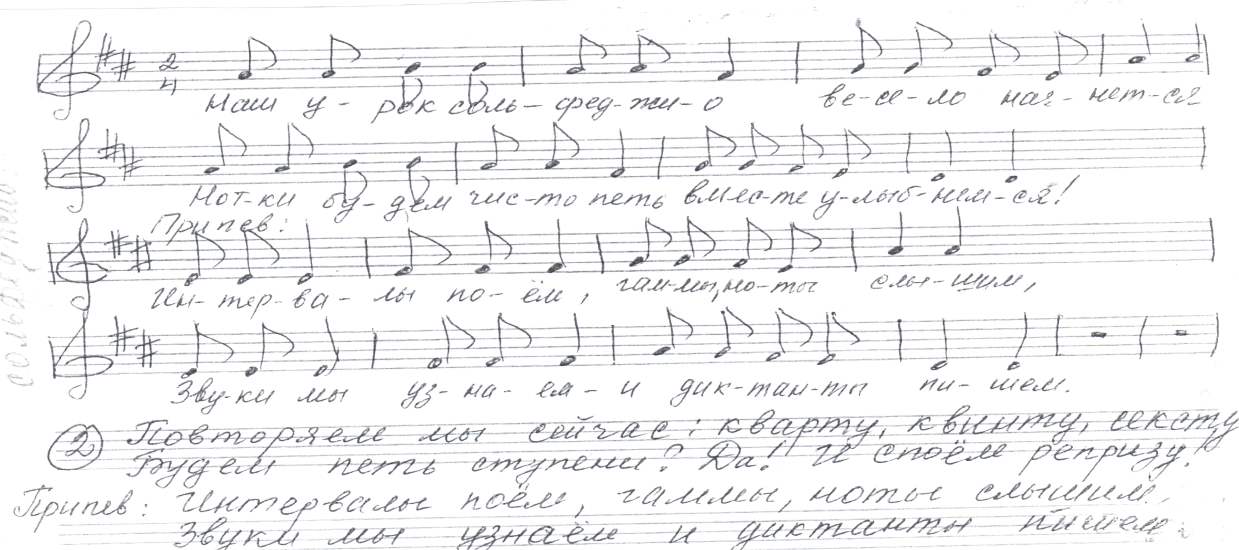 2
4
Наш у- рок соль- фед-жи-о ве-се-ло нач-нет-ся
Нот-ки бу-дем чис-то петь вмес-те у-лыб-нем-ся!
Припев:
Ин-тер-ва- лы по- ём, гам-мы, но-ты слы-шим,
Зву-ки мы уз- на- ем- и дик-тан-ты пи- шем.
② Повторяем мы сейчас: кварту, квинту, сексту
Будем петь ступени? Да! И споём репризу!
Припев: Интервалы поём, гаммы, ноты слышим,
Звуки мы узнаём и диктанты пишем.